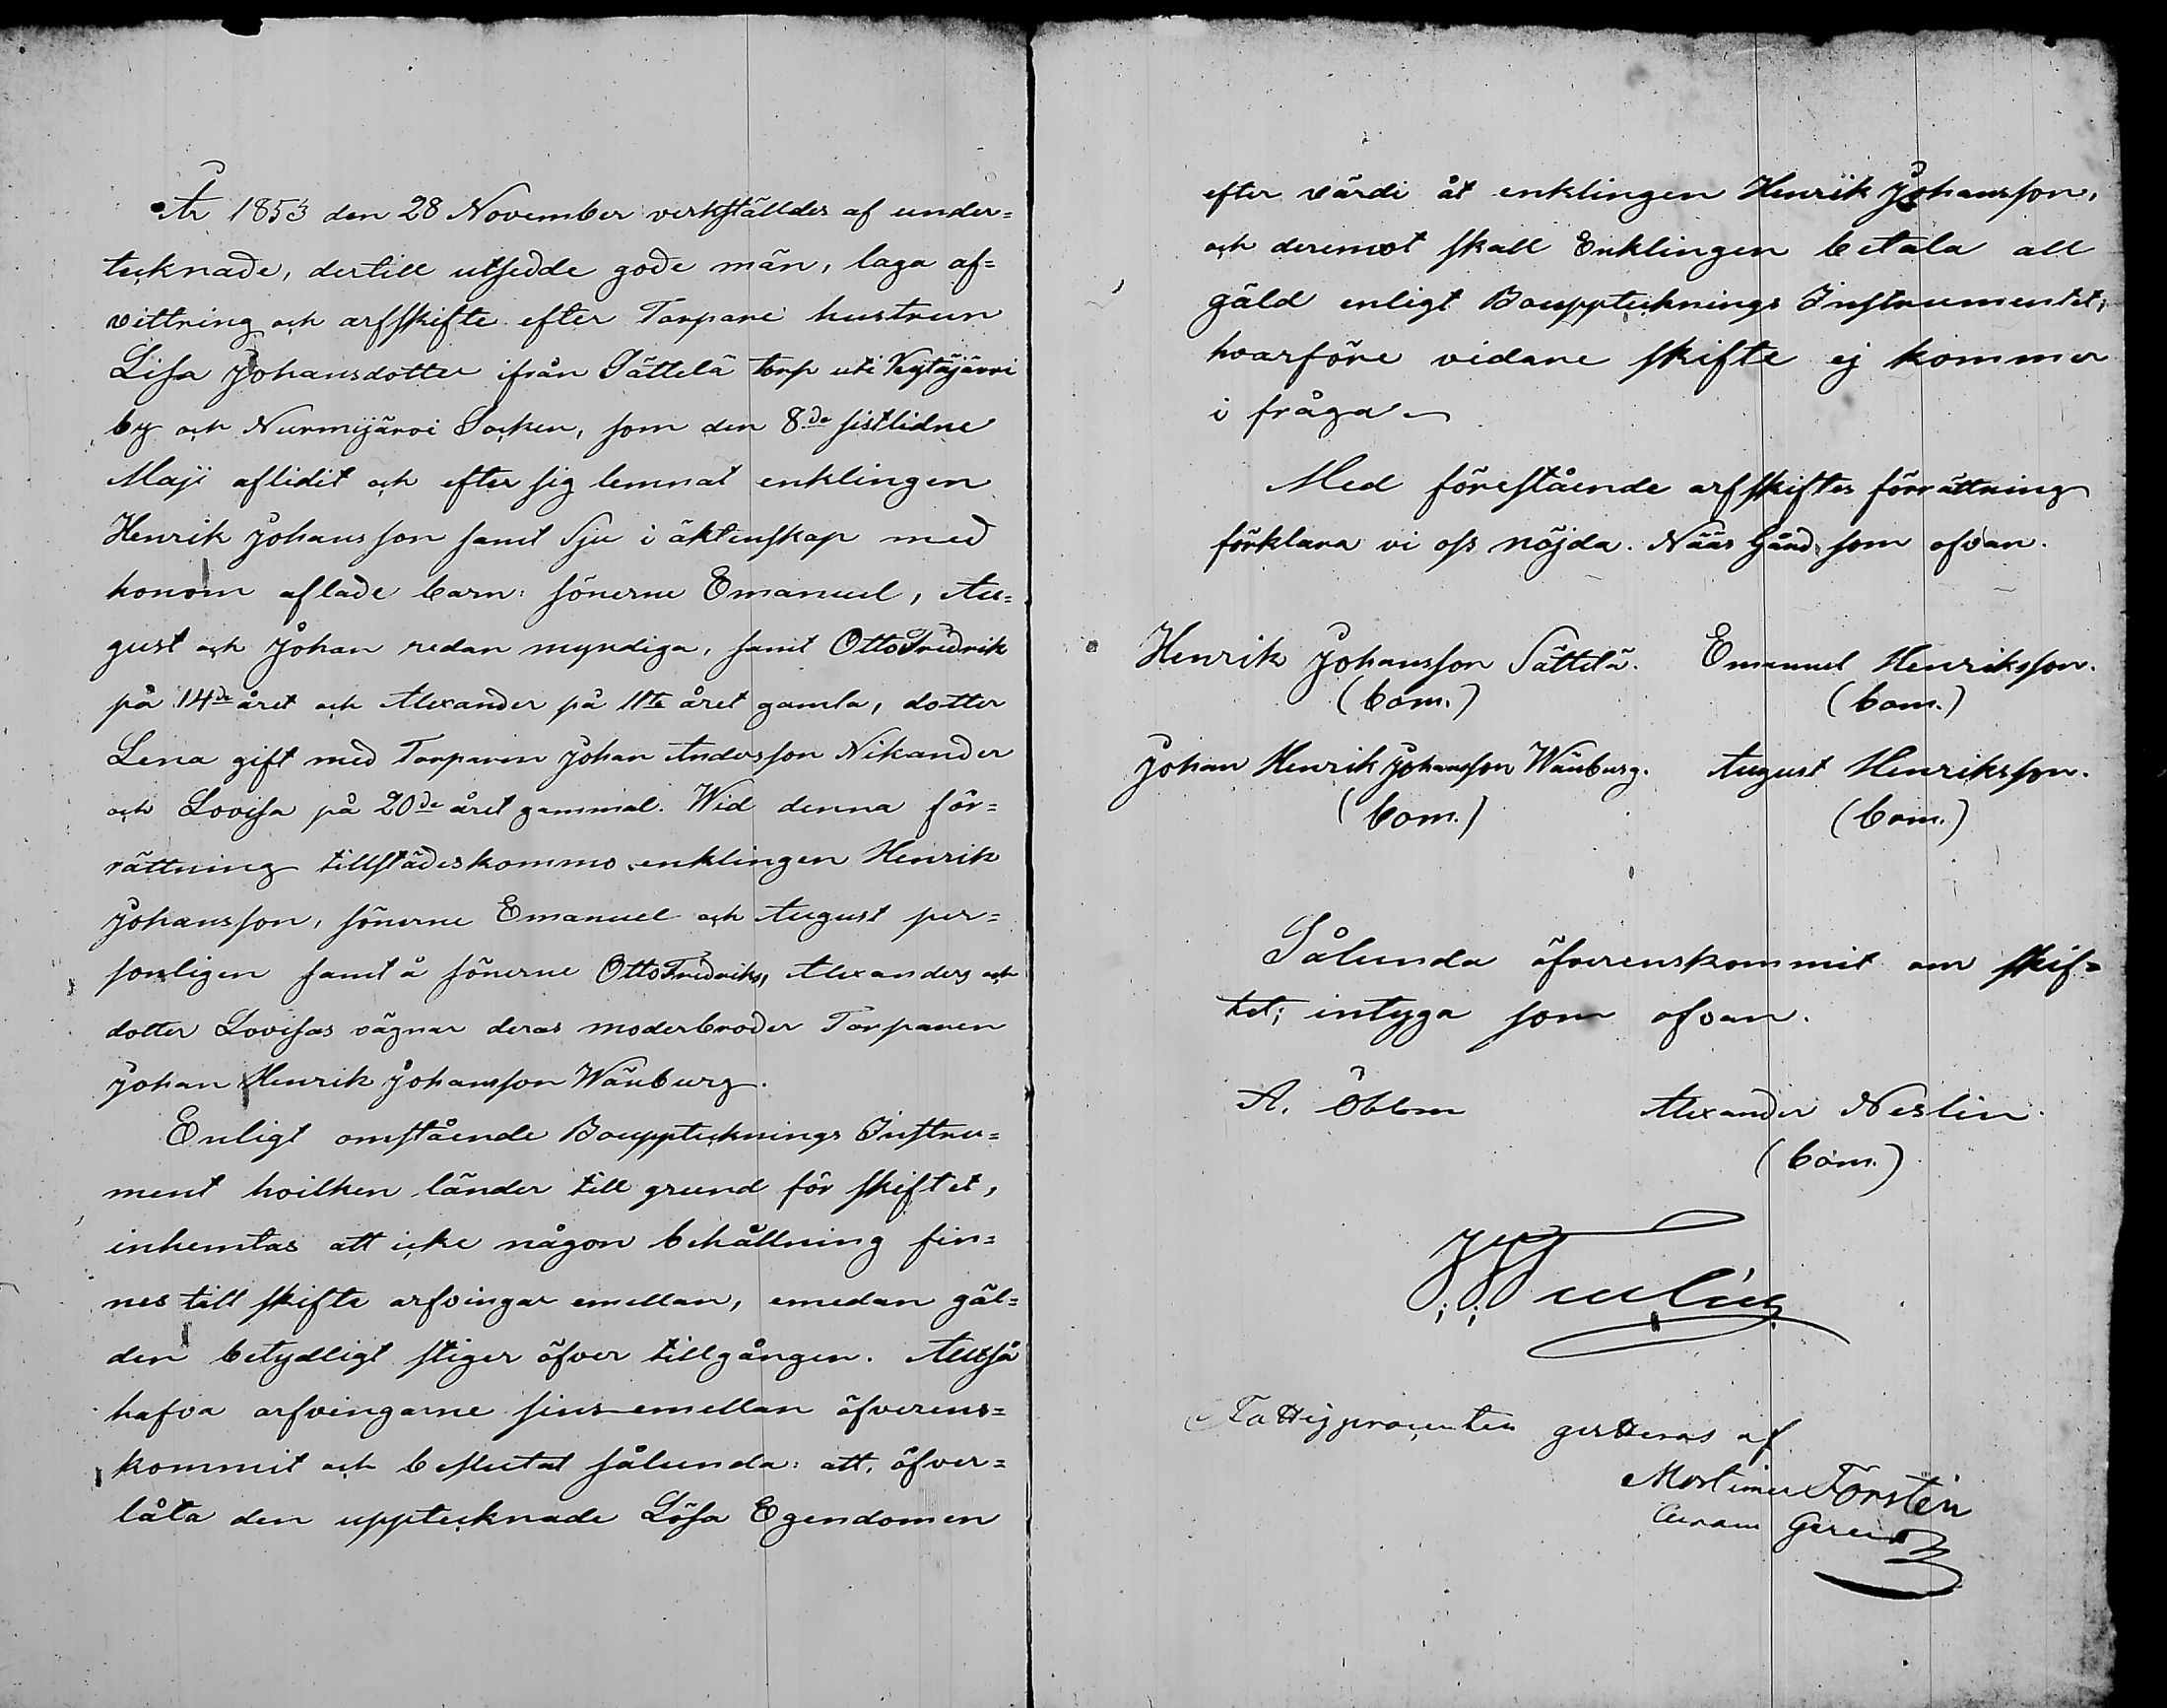 År 1853 den 28 November verkställdes af under=
tecknade, dertill utsedde gode män, laga af=
vittring och arfskifte efter Torpare hustrun
Lisa Johansdotter ifrån Sättelä torp uti Vegtäjärvi
by och Nurmijärvi Socken, som den 8de sistlidne
Maji aflidit och efter sig lemnat enklingen
Henrik Johansson samt Sju i äktenskap med
honom aflade barn: sönerne Emanuel, Au=
gust och Johan redan myndiga, samt Otto Fredrik
på 14de året och Alexander på 11te året gamla, dotter
Lena gift med Torparen Johan Andersson Nikander
och Lovisa på 20de året gammal. Wid denna för=
rättning tillstädeskommo enklingen Henrik
Johansson, sönerne Emanuel och August per=
sonligen samt å sönerne Otto Fredriks, Alexanders och
dotter Lovisas vägnar deras moderbroder Torparen
Johan Henrik Johansson Wänburg.
Enligt omstående Bouppteknings Instru=
ment hvilken länder till grund för skiftet,
inhemtas att icke någon behållning fin=
nes till skifte arfvingar emellan, emedan gäl=
den betydligt stiger öfver tillgången. Alltså
hafva arfvingarne sins emellan öfverens=
kommit och beslutat sålunda: att, öfver=
låta den upptecknade Lösa Egendomen
efter värdi åt enklingen Henrik Johansson,
och deremot skall Enklingen betala all
gäld enligt Bouppteknings Instrumentet,
hvarföre vidare skifte ej kommer
i fråga.
Med förestående arfskiftes förrättning
förklara vi oss nöjda. Nääs Gård som ofvan.
Henrik Johansson Sättelä. Emanuel Henriksson.
(bom.) (bom.)
Johan Henrik Johansson Wänburg. August Henriksson.
(bom.) (bom.)
Sålunda öfverenskommit om skif=
tet; intyga som ofvan.
A. Öblom Alexander Neslin.
(bom.)
Fattigprocenten qvitteras af
Mortimer Forstén